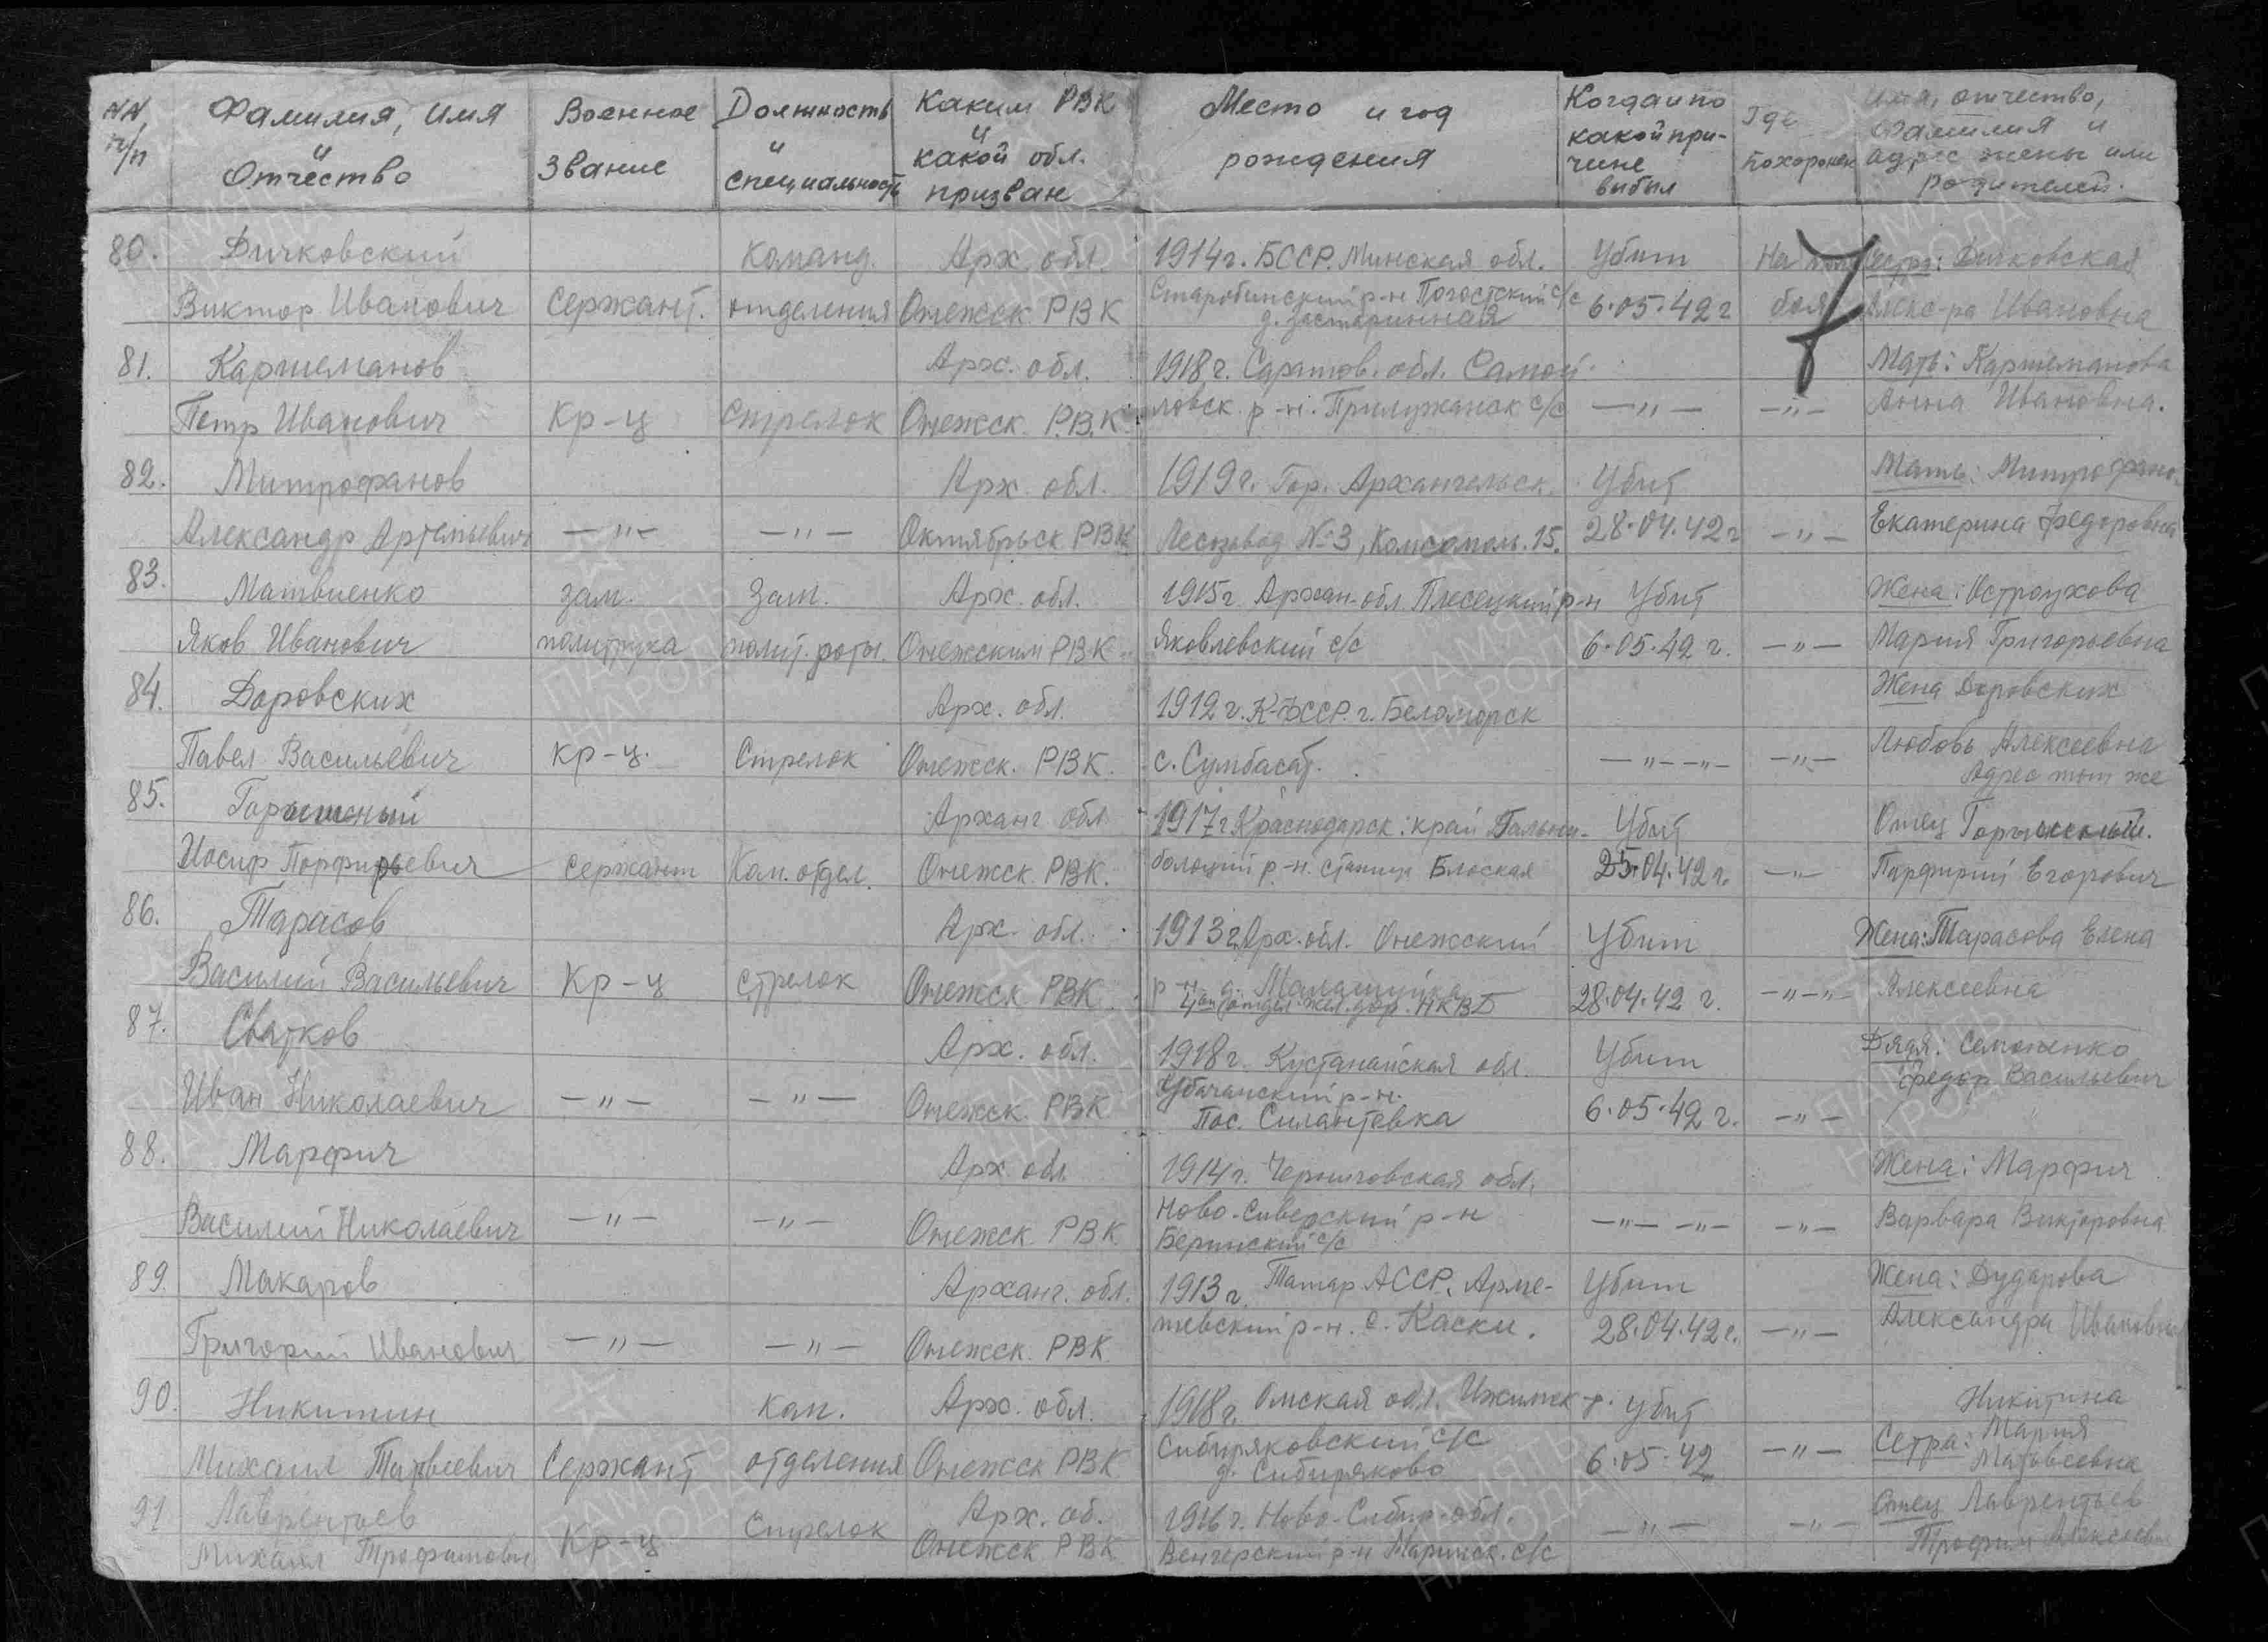 NN п/п
Фамилия, имя и Отчество
Военное Звание
Должность и специальность
Каким РВК и какой обл. призван
Место и год рождения
Когда и по какой причине выбыл
Где похоронен
Имя, отчество, фамилия и адрес жены или родителей.
80. Дичковский Команд. Арх. обл. 1914 г. БССР. Минская обл. Убит На поле Сестра: Дичковская
Виктор Иванович Сержант. отделения Онежск РВК Старобинский р-н Погостский с/с 6.05.42 г боя Алекс-ра Ивановна
д. Застаринная
81. Каршеманов Арх. обл. 1918 г. Саратов. обл. Самой- Мать: Каршеманова
Петр Иванович Кр-ц Стрелок Онежск. Р.В.К. ловск. р-н. Прилужанск с/с —"— —"— Анна Ивановна.
82. Митрофанов Арх. обл. 1919 г. Гор. Архангельск. Убит Мать: Митрофано-
Александр Артемьевич —"— —"— Октябрьск РВК Лесозавод №3, Комсомоль. 15. 28.04.42 г —"— Екатерина Федоровна
83. Матвиенко зам. Зам. Арх. обл. 1915 г Архан. обл. Плесецкий р-н Убит Жена: Остроухова
Яков Иванович политрука полит. роты. Онежским РВК Яковлевский с/с 6.05.42 г. —"— Мария Григорьевна
84. Доровских Арх. обл. 1912 г. К-ФССР. г. Беломорск Жена Доровских
Павел Васильевич кр-ц. Стрелок Онежск. РВК. с. —"— —"— —"— Любовь Алексеевна
Адрес тот же
85. Арханг обл 1917 г Краснодарск. край Убит Отец
Иосиф Порфирьевич Сержант Ком. отдел. Онежск РВК. р-н. станица 25.04.42 г. —"— Парфирий Егорович
86. Тарасов Арх. обл. 1913 г. Арх. обл. Онежский Убит Жена: Тарасова Елена
Василий Васильевич Кр-ц стрелок Онежск РВК р-н д. Малашуйка 28.04.42 г. —"—"— Алексеевна
отдел. жел. дор. НКВД
87. Сватков Арх. обл. 1918 г. Кустанайская обл. Убит Дядя: Семоненко
Иван Николаевич —"— —"— Онежск. РВК Убаганский р-н. 6.05.42 г. —"— Федор Васильевич
Пос. Силантевка
88. Марфич Арх. обл. 1914 г. Черниговская обл. Жена: Марфич
Василий Николаевич —"— —"— Онежск РВК Ново-Сиверский р-н —"— —"— —"— Варвара Викторовна
Бернский с/с
89. Макаров Арханг. обл. 1913 г. Татар АССР. Арме- Убит Жена: Дударова
Григорий Иванович —"— —"— Онежск. РВК р-н. с. Каски. 28.04.42 г. —"— Александра Ивановна
90. Никитин Ком. Арх. обл. 1918 г. Омская обл. Убит Никитина
Михаил Матвеевич Сержант отделения Онежск РВК Сибиряковский с/с 6.05.42 —"— Сетра: Мария
д. Сибиряково Матвеевна
91 Лаврентьев Стрелок Арх. об. 1916 г. Ново-Сибир. обл. Отец Лаврентьев
Михаил Трофимович Кр-ц Онежск РВК Венгерский р-н Маринск. с/с —"— —"— Трофим Алексеевич
ПАМЯТЬ НАРОДА